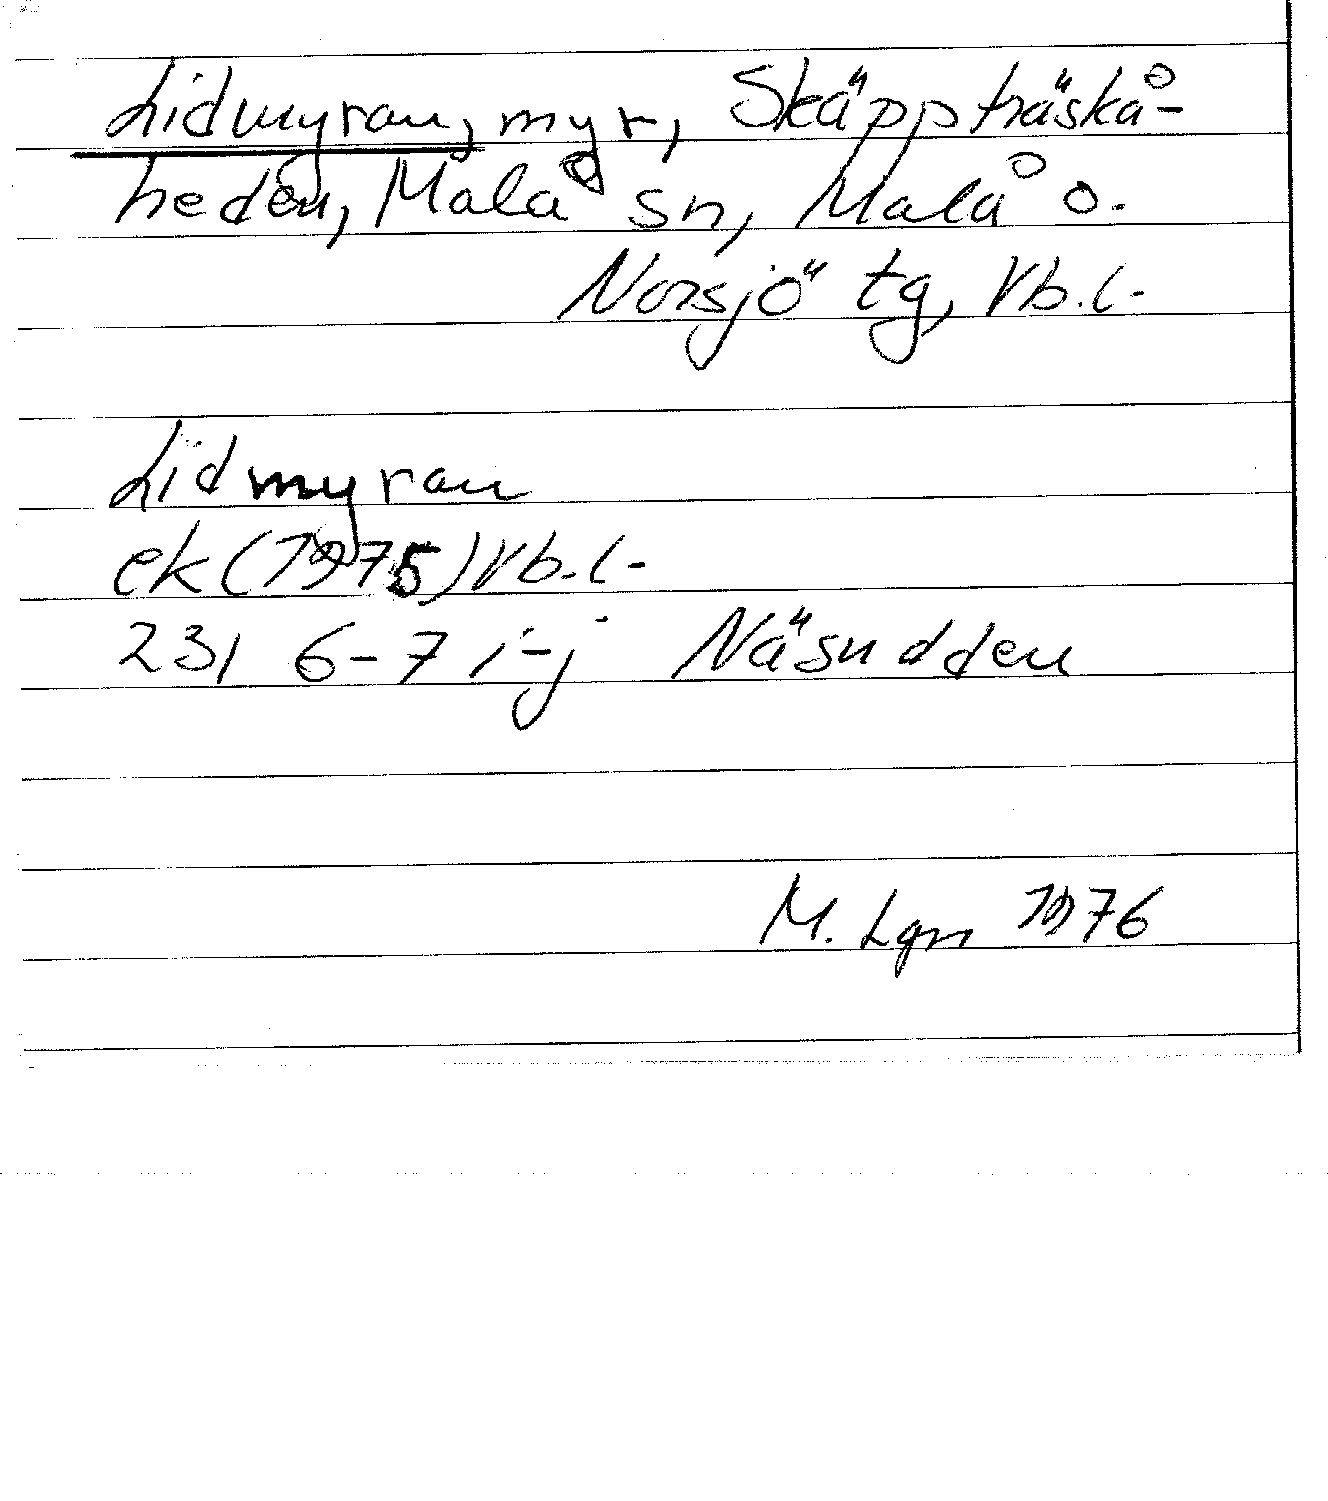 Lidmyran, myr, Skäppträskå-
heden, Malå sn, Malå o.
Norsjö tg, Vb.l.
Lidmyran
ek (1975) Vb.l.
23I 6-7 i-j Näsudden
M. Lgn 1976